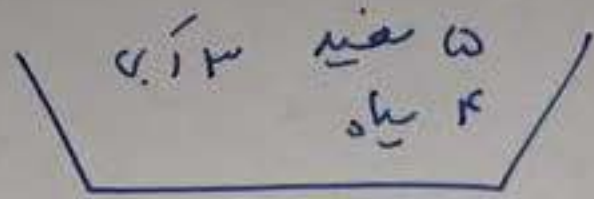 ۵ سفید ۳ آبی
۴ سیاه